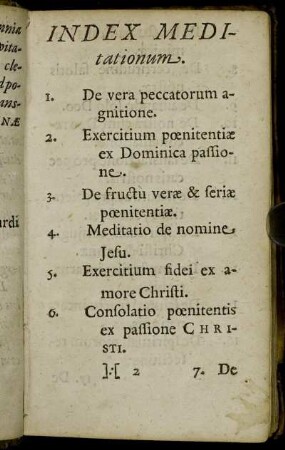 mnia
vita-
cle-
dpo-
ins-
NÆ
urdi
INDEX MEDI-
tationum.
1. De vera peccatorum a-
gnitione.
2. Exercitium pœnitentiæ
ex Dominica paſſio-
ne.
3. De fructu veræ & ſeriæ
pœnitentiæ.
4. Meditatio de nomine
Jeſu.
5. Exercitium fidei ex a-
more Chriſti.
6. Conſolatio pœnitentis
ex paſſione CHRI-
STI.
]:[ 2 7. De